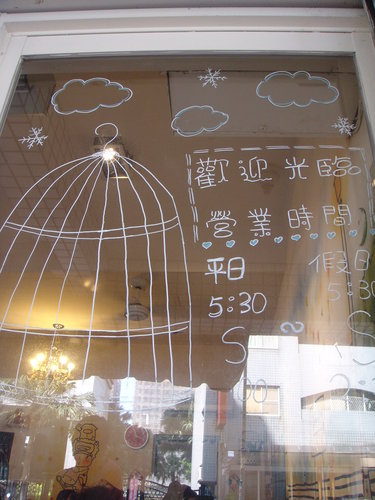 歡迎光臨
營業時間
平日 假日
5:30 5:30
S S